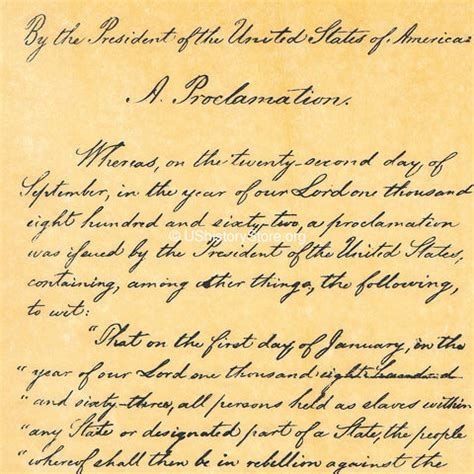 By the President of the United States of America:
A Proclamation.
Whereas, on the twenty-second day of
September, in the year of our Lord one thousand
eight hundred and sixty-two, a proclamation
© UShistoryStore.org
was issued by the President of the United States,
containing, among other things, the following,
to wit:
"That on the first day of January, in the
"year of our Lord one thousand eight hundred
"and sixty-three, all persons held as slaves within
"any State or designated part of a State, the people
"whereof shall then be in rebellion against the